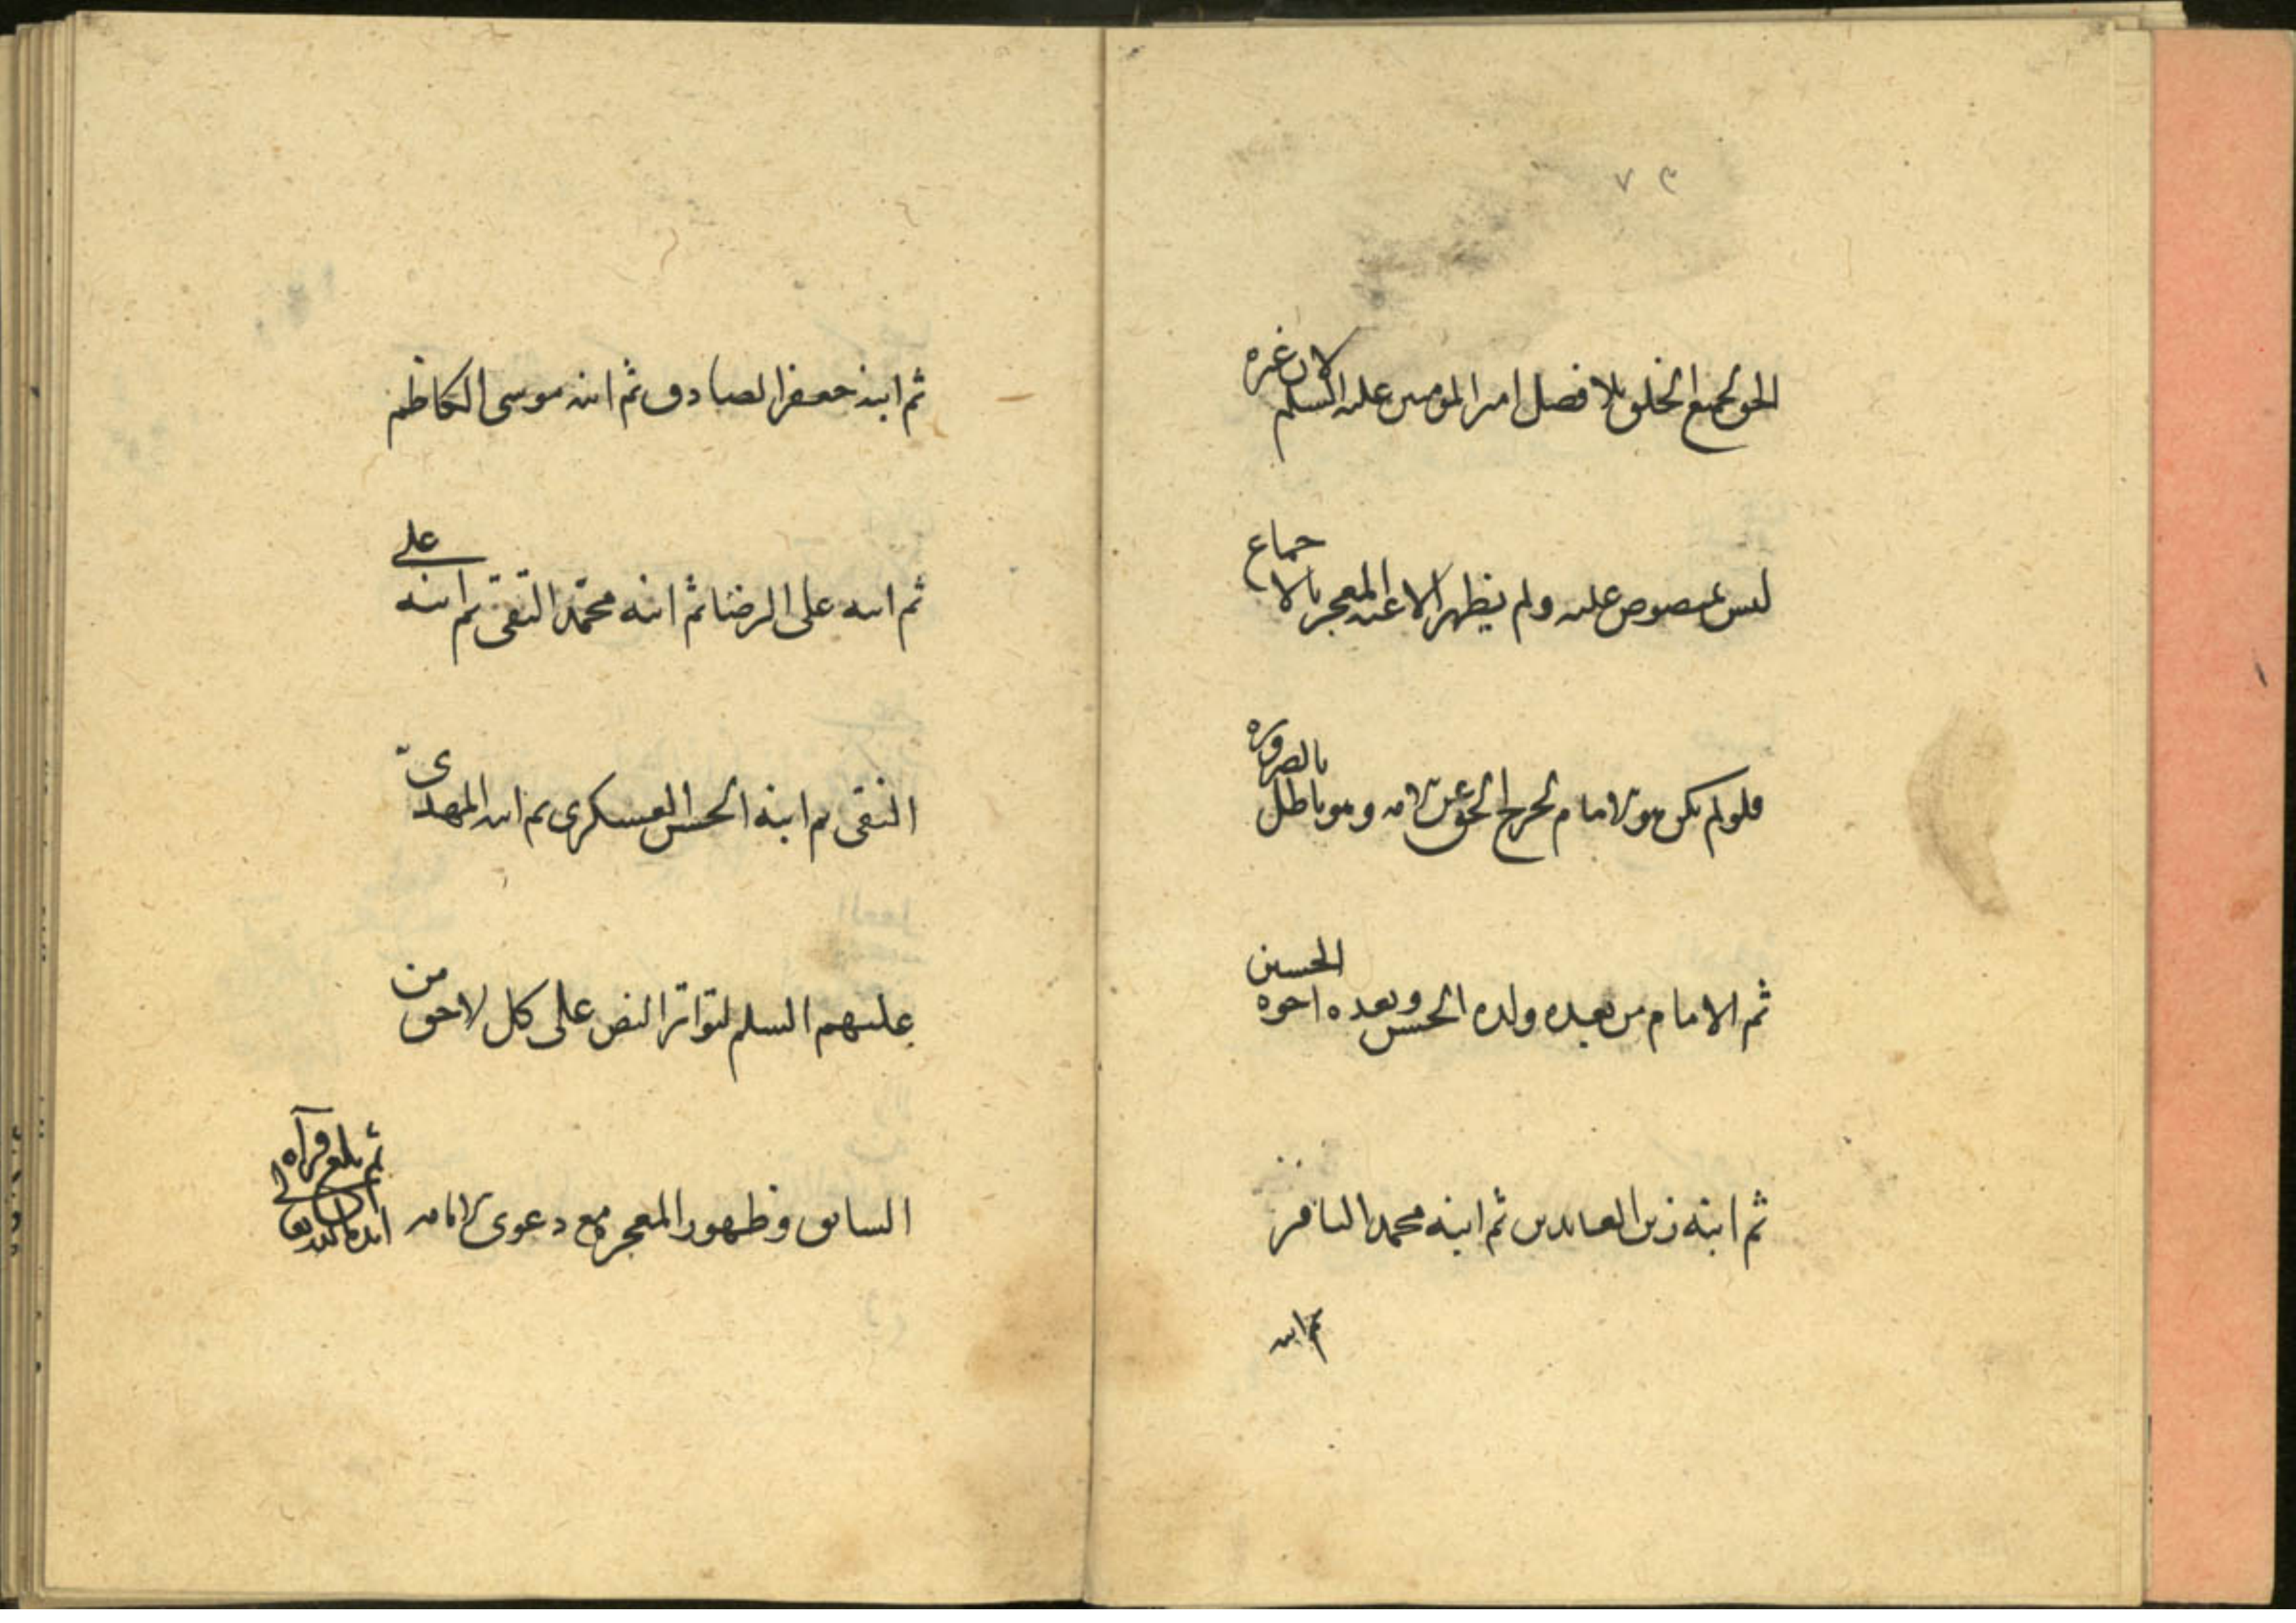 ٧٣
الحق لجميع الخلق بلا فصل امير المومنين عليه السلم لان غيره
ليس بمنصوص عليه ولم يظهر المعجز الا عنه بالاجماع
فلو لم يكن هو الامام لخرج الحق عن الامه وهو باطل بالضروره
ثم الامام من بعده ولده الحسن وبعده اخوه الحسين
ثم ابنه زين العابدين ثم ابنه محمد الباقر
ثم ابنه
ثم ابنه جعفر الصادق ثم ابنه موسى الكاظم
ثم ابنه على الرضا ثم ابنه محمّد التقى ثم ابنه على
النقى ثم ابنه الحسن العسكرى ثم ابنه المهدىّ
عليهم السلم لتواتر النص على كل لاحق من
السابق وظهور المعجز مع دعوى الامامه
ثم بلغ قرآه
ايده الله تعالى